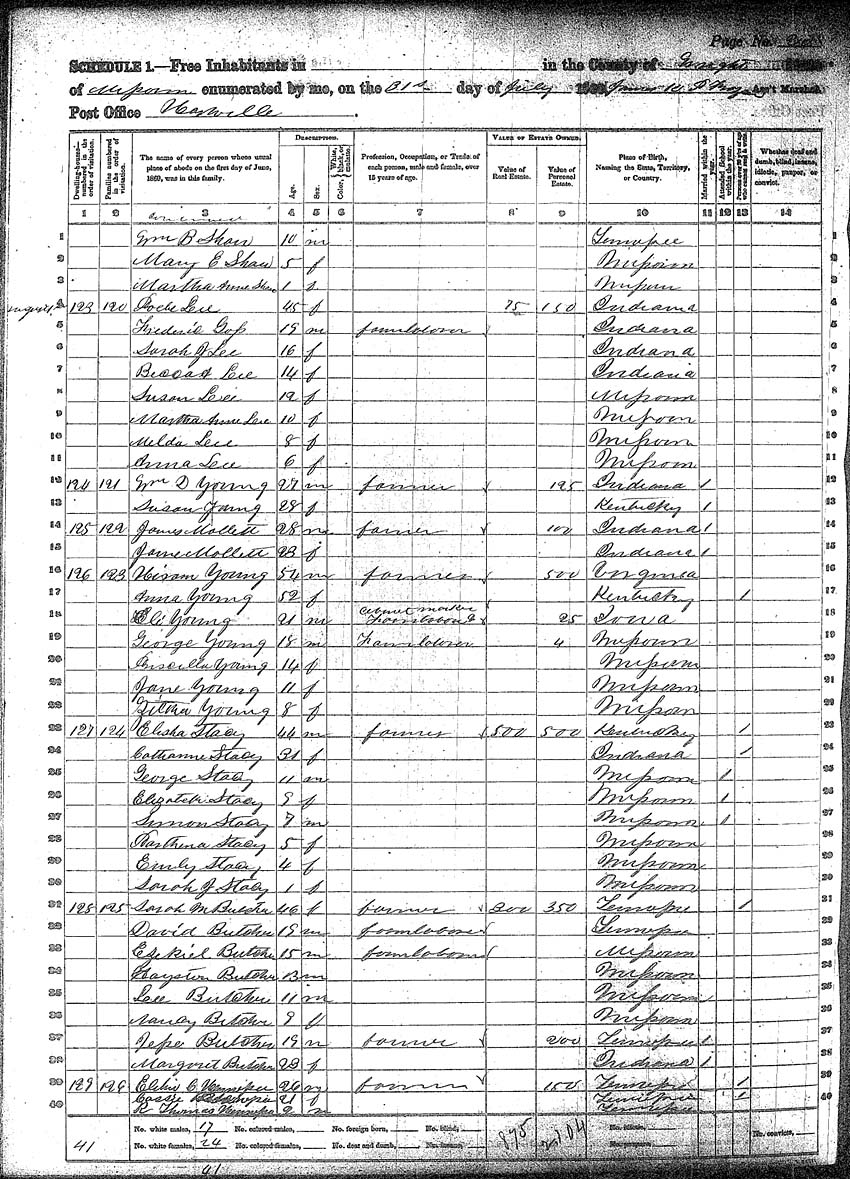 Page No.
SCHEDULE 1.—Free Inhabitants in in the County of
of Missouri enumerated by me, on the 31st day of July 1860. Ass't Marshal.
Post Office Hartville.
DESCRIPTION. VALUE OF ESTATE OWNED.
Dwelling-houses—numbered in the order of visitation. Families numbered in the order of visitation. The name of every person whose usual place of abode on the first day of June, 1860, was in this family. Age. Sex. Color, White, black, or mulatto. Profession, Occupation, or Trade of each person, male and female, over 15 years of age. Value of Real Estate. Value of Personal Estate. Place of Birth, Naming the State, Territory, or Country. Married within the year. Attended School within the year. Persons over 20 y'rs of age who cannot read & write. Whether deaf and dumb, blind, insane, idiotic, pauper, or convict.
1 2 3 4 5 6 7 8 9 10 11 12 13 14
1 Wm B Shaw 10 m Tennessee 1
2 Mary E Shaw 5 f Missouri 2
3 Martha Anne Shaw 1 f Missouri 3
4 123 120 Lee 45 f 75 150 Indiana 4
5 Frederic Goss 19 m farm laborer Indiana 5
6 Sarah J Lee 16 f Indiana 6
7 Lee 14 f Indiana 7
8 Susan Lee 12 f Missouri 8
9 Martha Anne Lee 10 f Missouri 9
10 Melda Lee 8 f Missouri 10
11 Anna Lee 6 f Missouri 11
12 124 121 Wm D Young 27 m farmer 125 Indiana 1 12
13 Susan Young 28 f Kentucky 1 13
14 125 122 James Mollett 28 m farmer 100 Indiana 1 14
15 Jane Mollett 23 f Indiana 1 15
16 126 123 Hiram Young 54 m farmer 500 Virginia 16
17 Anna Young 52 f Kentucky 1 17
18 Eli Young 21 m farm laborer 25 Iowa 18
19 George Young 18 m farm laborer 4 Missouri 19
20 Priscilla Young 14 f Missouri 20
21 Jane Young 11 f Missouri 21
22 Young 8 f Missouri 22
23 127 124 Elisha Stacy 44 m farmer 500 500 Kentucky 1 23
24 Catharine Stacy 31 f Indiana 1 24
25 George Stacy 11 m Missouri 1 25
26 Elizabeth Stacy 9 f Missouri 1 26
27 Simon Stacy 7 m Missouri 1 27
28 Stacy 5 f Missouri 28
29 Emily Stacy 4 f Missouri 29
30 Sarah J Stacy 1 f Missouri 30
31 128 125 Sarah M Butcher 46 f farmer 300 350 Tennessee 1 31
32 David Butcher 19 m farm laborer Tennessee 32
33 Ezekiel Butcher 15 m farm laborer Missouri 33
34 Butcher 13 m Missouri 34
35 Lee Butcher 11 m Missouri 35
36 Nancy Butcher 9 f Missouri 36
37 Jesse Butcher 19 m farmer 200 Tennessee 1 37
38 Margaret Butcher 23 f Indiana 1 38
39 129 126 26 m farmer 150 Tennessee 1 39
40 21 f Tennessee 1 40
R Thomas 2 m Tennessee
41 No. white males, 17 No. colored males, No. foreign born, No. blind, 875 No. idiotic, No. convicts,
No. white females, 24 No. colored females, No. deaf and dumb, No. insane, No. paupers,
41